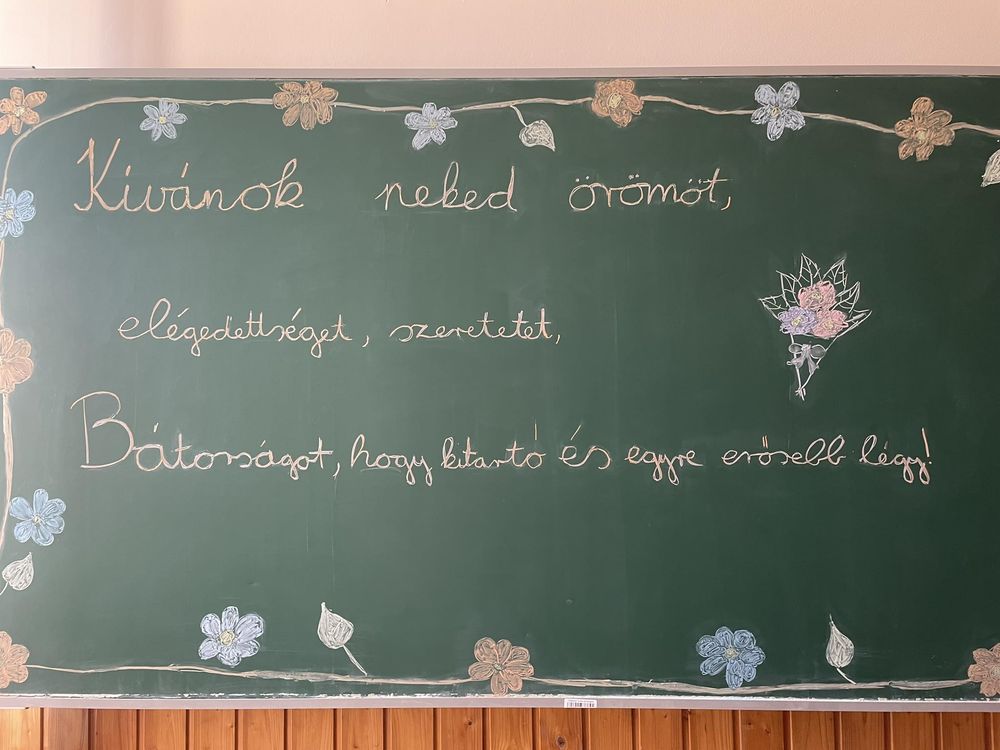 Kivánok neked örömöt,
elégedettséget, szeretetet,
Bátorságot, hogy kitartó és egyre erősebb légy!